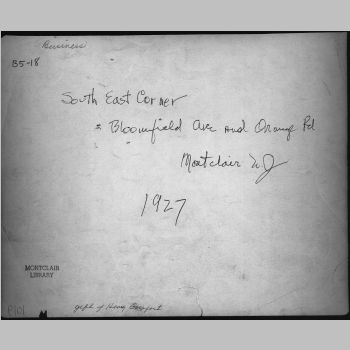 Business
B5-18
South East Corner
Bloomfield Ave and Orange Rd
Montclair NJ
1927
MONTCLAIR
LIBRARY
gift of Henry